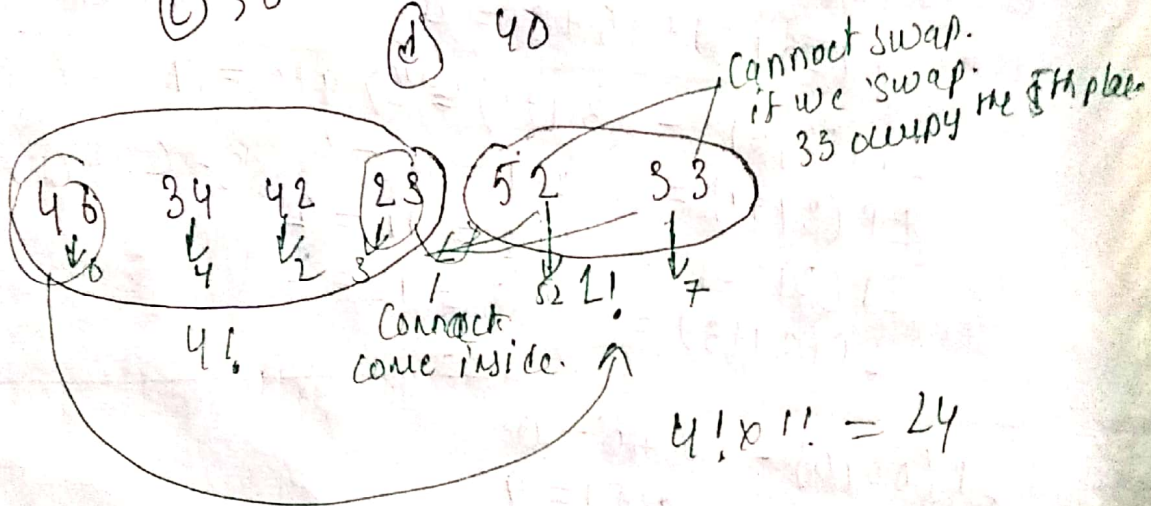 (c) 30
(d) 40
Cannoct swap.
if we swap.
33 occupy the 5th place
46 34 42 23 52 33
6 4 2 3 52 7
4! 1!
Connect
come inside.
4! x 1! = 24